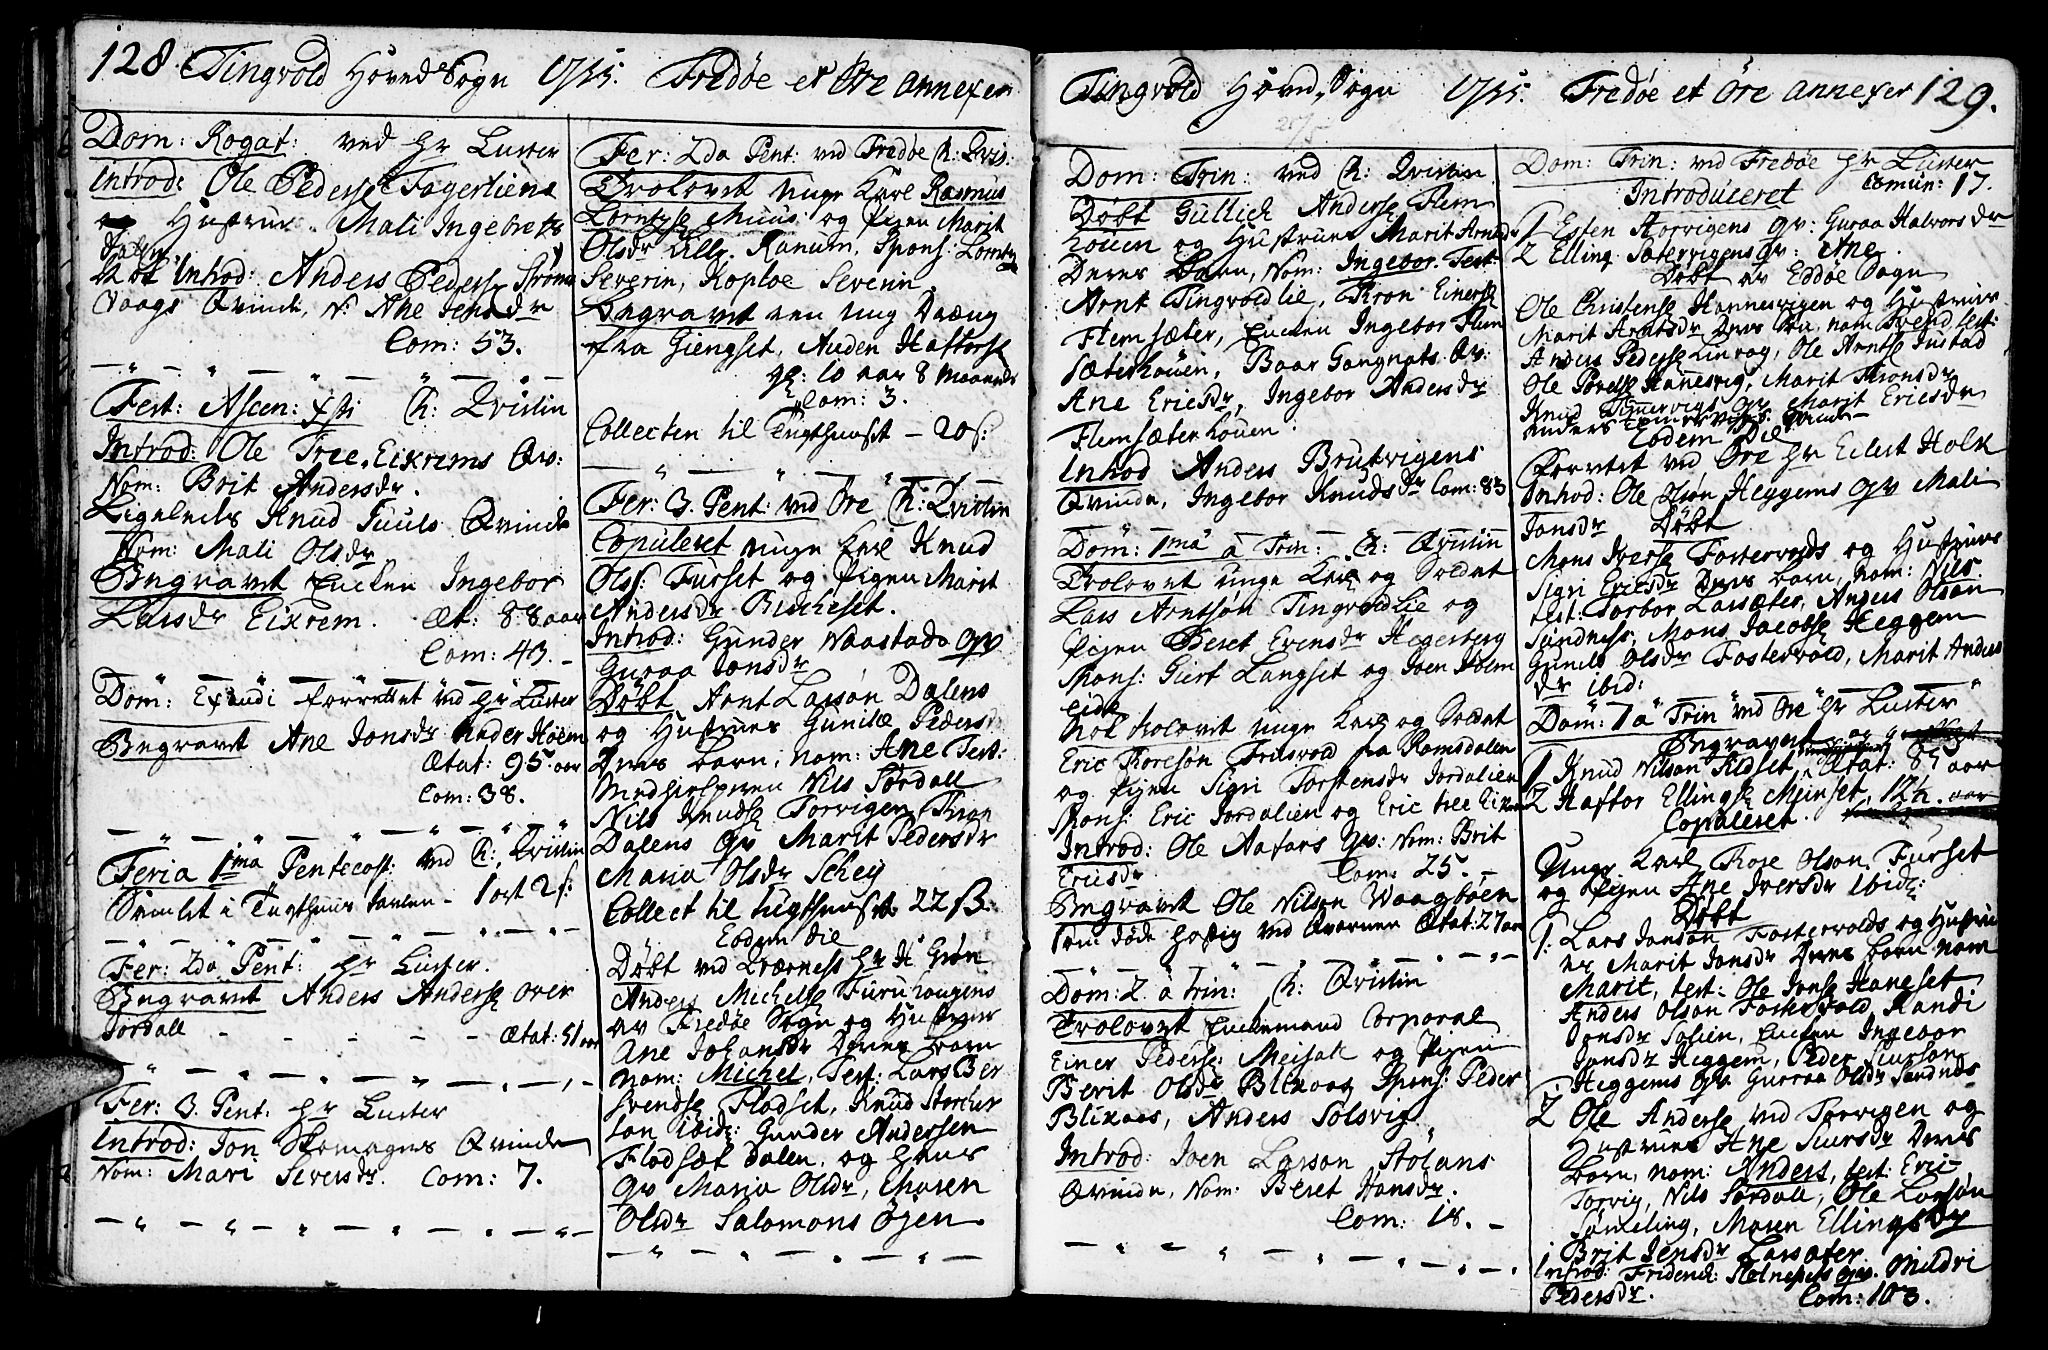 128. Tingvold Hoved Sogn 1755. Fredøe et Øre annexer
Dom: Rogat: ved Hr Luster
Introd: Ole Peders Fagerliens
Hustrue. Mali Ingebrets
datter
Nok Introd: Anders Peders Strøms
Vaags Qvinde, N: Ane Jensdr
Com: 53.
Fest: Ascen: Xsti C: Qvistin
Introd: Ole Tree, Eikrems Qv:
Nom: Brit Andersdr.
Ligeledes Knud Juuls Qvinde
Nom: Mali Olsdr
Begravet Enken Ingebor
Larsdr Eikrem. Æt: 88 aar
Com: 43.
Dom: Exaudi forrettet ved Hr Luster
Begravet Ane Jonsdr Hoem
Ætat: 95 aar
Com: 38.
Feria 1ma Pentecost: ved C: Qvistin
Samlet i Tugthuus tavlen - 1 ort 2 s:
Fer: 2da Pent: Hr Luster.
Begravet Anders Anders over
Jordall - - - - - Ætat: 51 aar
Fer: 3. Pent: Hr Luster
Introd: Jon Skomagers Qvinde
Nom: Mari Siversdr. Com: 7.
Fer: 2da Pent: ved Fredøe C: Qvis:
Trolovet unge Karl Rasmus
Lorntys Muus og Pigen Marit
Olsdr Lille Ranum, Spons: Lorntz
Severin, Koploe Severin.
Begravet een ung Dreng
fra Giengset, Auden Haftors
gl: 10 aar 8 maaneder
Com: 3.
Collecten til Tugthuuset - 20 s:
Fer: 3. Pent: ved Øre C: Qvistin
Copuleret unge Karl Knud
Ols: Furset og Pigen Marit
Andersdr Bircheset.
Introd: Gunder Naastads Qv
Guraa Jonsdr
Døbt Arnt Larsøn Dalens
og Hustrues Gunilæ Pedersdr
Deres Barn, nom: Ane Test:
Medhielperen Nils Sørdall
Nils Knuds Torvigen, Thron
Dalens Qv Marit Pedersdr
Maria Olsdr Schey
Collect til tugthuuset 22 ß.
Eodem die
Døbt ved Qvernes Hr H: Grøn
Anders Michels Furuhaugens
av Fredøe Sogn og Hustrues
Ane Johansdr Deres Barn
nom: Michel, Test: Lars Ber
svends Flodset, Knud Storchur
ibid: Gunder Andersen
Flodset Dalen, og hans
Qv Maria Olsdr, Maren
Olsdr Salomons Øjen.
Tingvold Hoved Sogn 1755. Fredøe et Øre annexer 129.
Dom: Trin: ved C: Qvistin
Døbt Gullich Anders Flem
houen og Hustrues Marit Arnts
Deres Barn, Nom: Ingebor. Test
Arnt Tingvoldlie, Thron Einers
Flemsæter, Enken Ingebor Flem
sæterhouen, Baar Gangnats Qv:
Ane Ericsdr, Ingebor Andersdr
Flemsæterhouen.
Introd Anders Brutvigens
Qvinde, Ingebor Knudsdr Com: 83
Dom: 1ma a Trin: C: Qvistin
Trolovet unge Karl og Soldat
Lars Arntsøn Tingvoldlie og
Pigen Beret Evensdr Hegerberg
Spons: Giert Langset og Joen Hoem
eide
Nok trolovet unge Karl og Soldat
Eric Toresøn Frisvold fra Romsdalen
og Pigen Sigri Torstensdr Jordalien
Spons: Eric Jordalien og Eric tree
Introd: Ole Aafars Qv: Nom: Brit
Ericsdr Com: 25.
Begravet Ole Nilsøn Waagbøen
som døde hastig ved Qvernen Ætat: 27 aar
Dom: 2. a Trin: C: Qvistin
Trolovet Enkemand Corporal
Einer Peders: Meisal og Pigen
Berit Olsdr Blikaas Spons: Peder
Blikaas, Anders Solsvig
Introd: Joen Larsøn Stølans
Qvinde, Nom: Beret Hansdr.
Com: 18.
Dom: Trin: ved Fredøe Hr Luster
Introduceret Comun: 17.
1 Esten Korvigens Qv: Guraa Halvorsdr
2 Elling Sætervigens Qv: Ane.
Døbt av Eddøe Sogn
Ole Christens Hannesvigen og Hustrues
Marit Arntsdr Deres Ba, nom Svend, test:
Anders Peders Linvog, Ole Arnts Justad
Ole Povels Hanesvig, Marit Thronsdr
Knud Timervigs Qv Marit Ericsdr
Eodem Die
Forrettet ved Øre Hr Eilert Holk
Introd: Ole Olsøn Heggems Qv Mali
Jonsdr Døbt
Mons Ivers Fostervolds og Hustrues
Sigri Ericsdr Deres Barn, nom: Nils
test: Torbor Larsæter, Anders Olsøn
Sundnes, Mons Jacobs Heggem
Gunild Olsdr Fostervold, Marit Anders
dr ibid:
Dom: 1 a Trin ved Øre Hr Luster
Begravet
1 Knud Nilsøn Ætat: 85 aar
2 Haftor Ellings Meinset, 12½ aar
Copuleret.
Unge Karl Thore Olsøn Furset
og Pigen Ane Iversdr ibid:
Døbt
1. Lars Jonsøn Fostervolds og Hustru
es Marit Jonsdr Deres Barn nom
Marit, test: Ole Jons Haneset
Anders Olsøn Fostervold, Randi
Jonsdr Solien, Enken Ingebor
Jonsdr Heggem, Peder Siursøn
Heggems Qv Guraa Olsdr Sandnes
2 Ole Anders ved Torvigen og
Hustrues Ane Siursdr Deres
Barn, nom: Anders, test: Eric
Torvig, Nils Sørdall, Ole Larsøn
Sømeling, Maren Ellingsdr
Brit Jensdr Larsæter
Introd: Friderich: Qv. Mildri
Pedersdr. Com: 103.